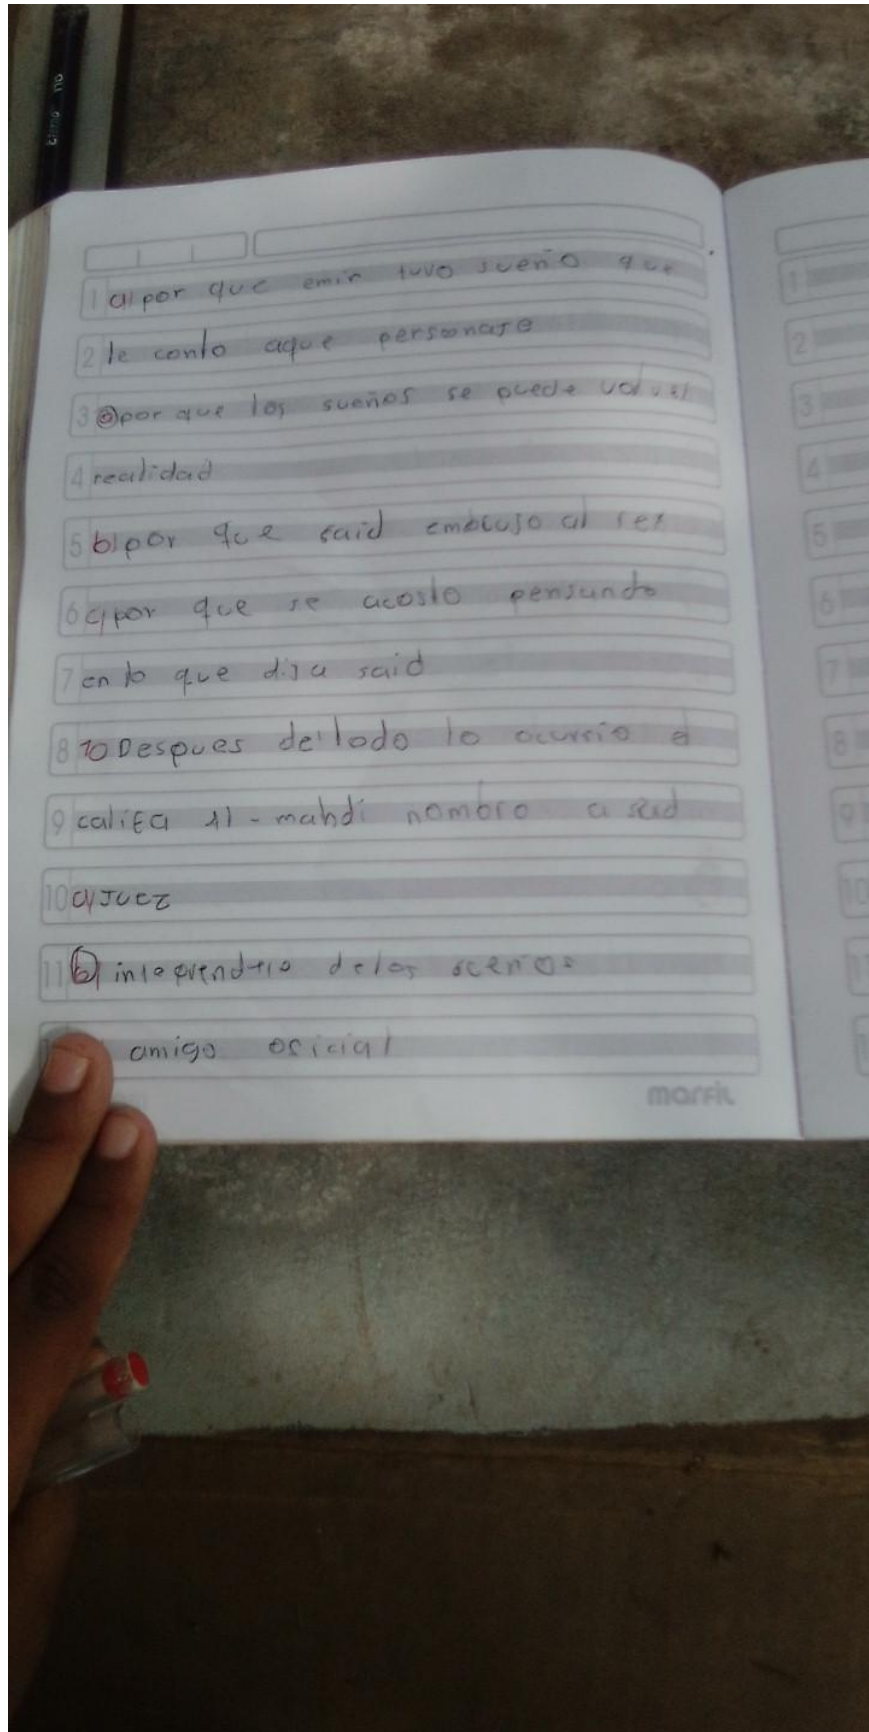 a) por que emir tuvo sueño que
le conto aque personaje
a) por que los sueños se puede volver
realidad
b) por que said embouso al ser
c) por que se acosto pensando
en lo que dija said
10 Despues de todo lo ocurrio el
califa Al-mahdi nombro a said
a) JUEZ
b) de los sceños
amigo oficial
marfil